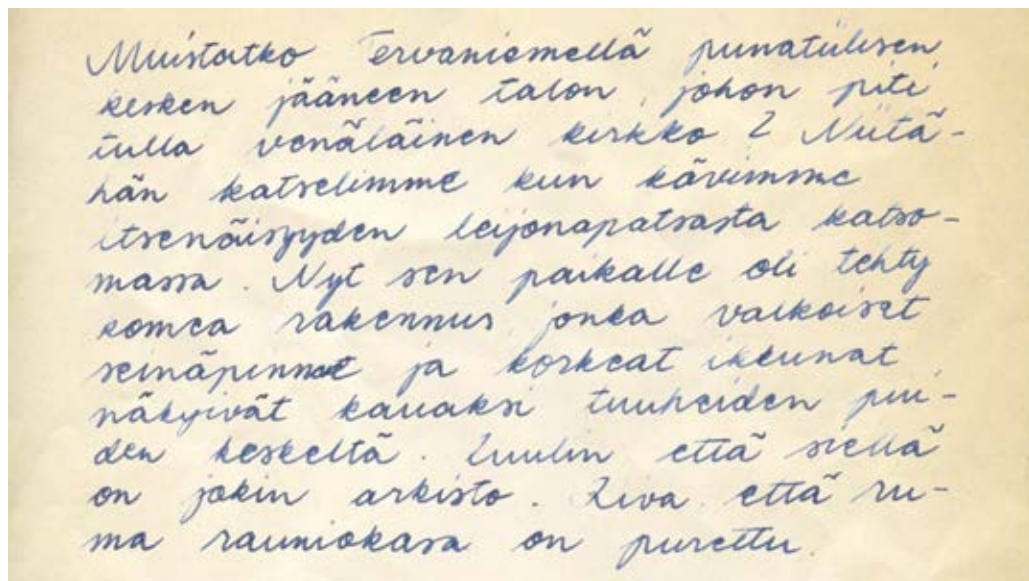 Muistatko Tervaniemellä punatiilisen
kesken jääneen talon, johon piti
tulla venäläinen kirkko? Niitä-
hän katselimme kun kävimme
itsenäisyyden leijonapatsasta katso-
massa. Nyt sen paikalle oli tehty
komea rakennus jonka valkoiset
seinäpinnat ja korkeat ikkunat
näkyivät kauaksi tuuheiden pui-
den keskeltä. Luulin että siellä
on jokin arkisto. Kiva että ru-
ma rauniokasa on purettu.